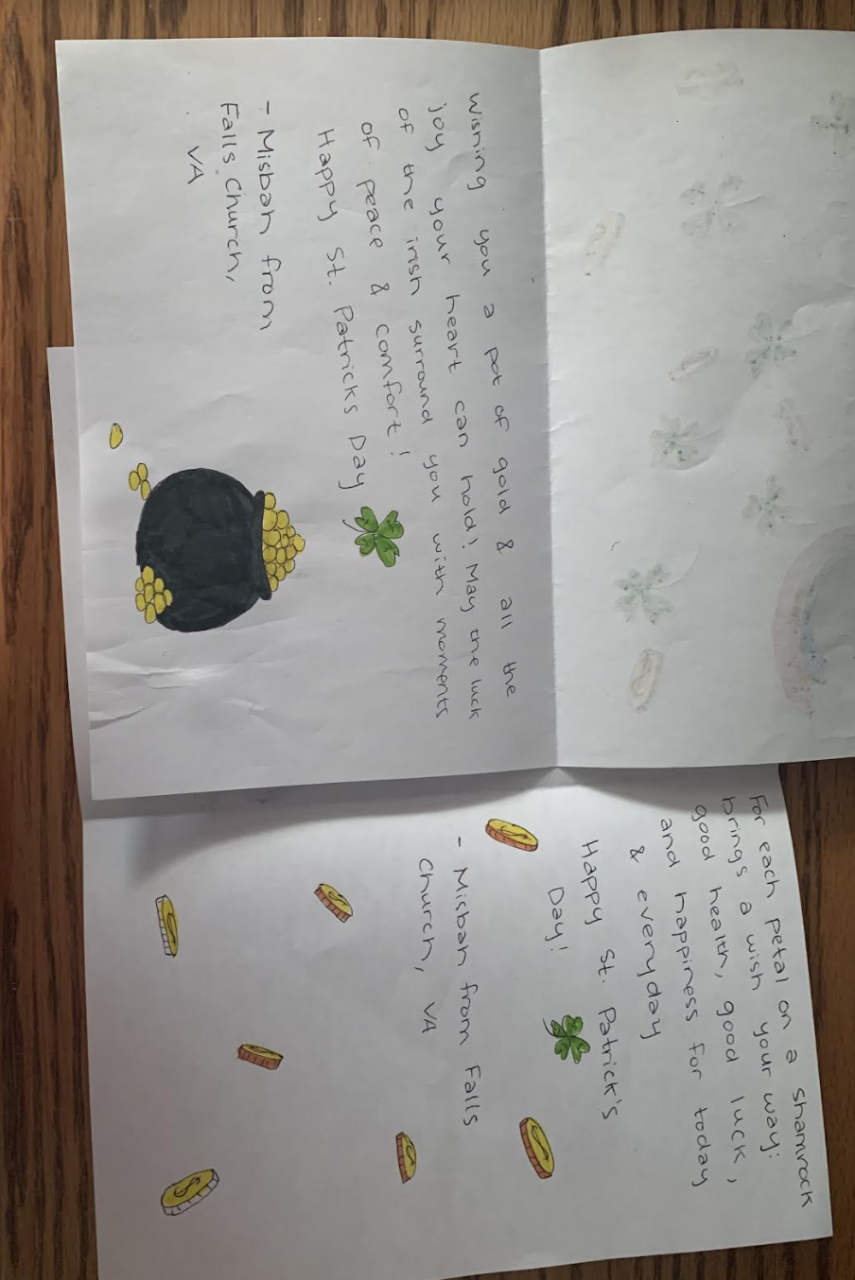 Wishing you a pot of gold & all the
joy your heart can hold! May the luck
of the irish surround you with moments
of peace & comfort!
Happy St. Patricks Day
- Misbah from
Falls Church,
VA
For each petal on a shamrock
brings a wish your way:
good health, good luck,
and happiness for today
& everyday
Happy St. Patrick's
Day!
- Misbah from Falls
Church, VA